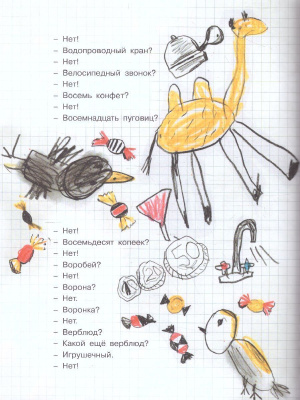 – Нет!
– Водопроводный кран?
– Нет!
– Велосипедный звонок?
– Нет!
– Восемь конфет?
– Нет!
– Восемнадцать пуговиц?
– Нет!
– Восемьдесят копеек?
– Нет!
– Воробей?
– Нет!
– Ворона?
– Нет.
– Воронка?
– Нет.
– Верблюд?
– Какой ещё верблюд?
– Игрушечный.
– Нет!